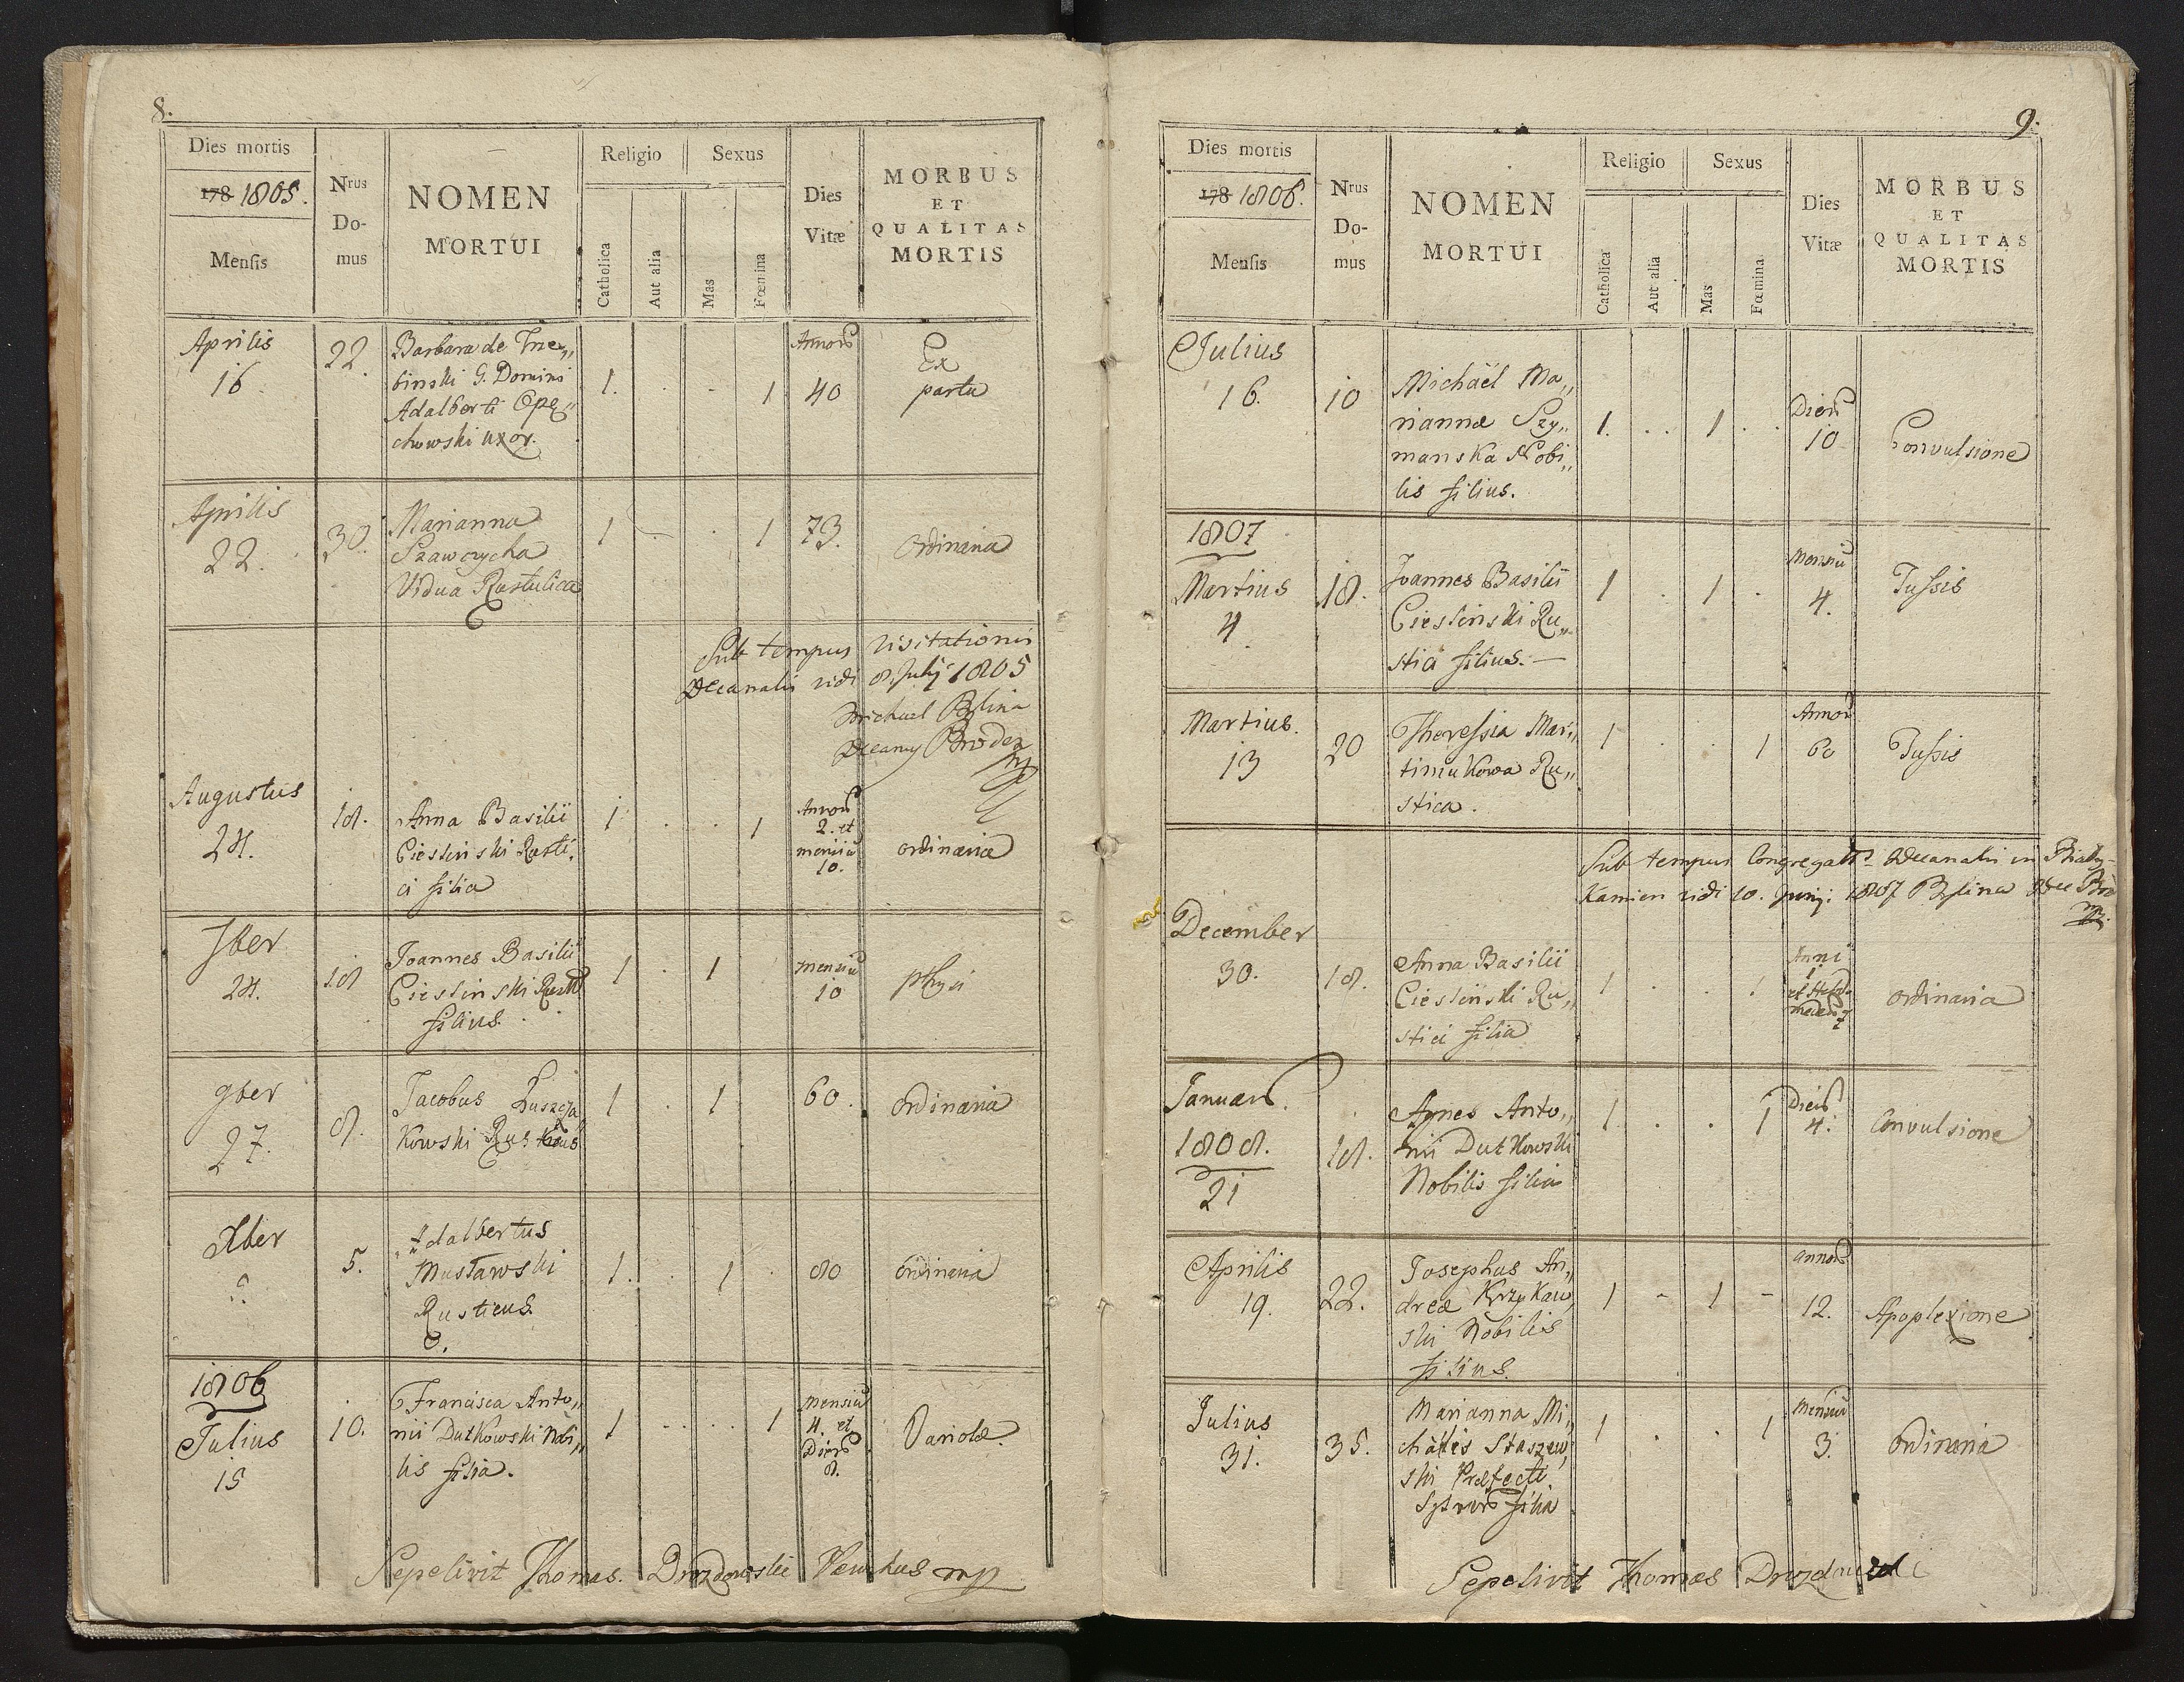 8.
Dies mortis
178 1805.
Mensis
Nrus
Do-
mus
NOMEN
MORTUI
Religio
Catholica
Aut alia
Sexus
Mas
Fœmina
Dies
Vitæ
MORBUS
ET
QUALITAS
MORTIS
Aprilis
16.
22.
Barbara de Trze„
binski G. Domini
Adalberti Ope„
chowski uxor.
1. . . 1
Annorū
40
Ex
partu
Aprilis
22.
30.
Marianna
Szawczycha
Vidua Rustulica
1 . . 1
73.
Ordinaria
Sub tempus Visitationis
Decanalis vidi 8. Julij 1805
Michael Bylina
Decanus
mp
Augustus
24.
18.
Anna Basilii
Ciesłinski Rusti„
ci filia
1 . . 1
Annorū
2. et
mensiū
10.
ordinaria
7ber
24.
18
Joannes Basilii
Ciesłinski
filius.
1 . 1
mensiū
10
9ber
27.
8.
Jacobus Łuszcza„
kowski
1 . 1
60.
Ordinaria
Xber
5.
Adalbertus
Rusticus.
1. . 1 .
80
ordinaria
1806
Julius
15
10.
Francisca Anto„
nii Dutkowski Nobi„
lis filia.
1 . . . 1
mensiū
4. et
Dierū
8.
Variolæ.
Sepelivit Thomas Drozdowski mp
9.
Dies mortis
178 1806.
Mensis
Nrus
Do-
mus
NOMEN
MORTUI
Religio
Catholica
Aut alia
Sexus
Mas
Fœmina
Dies
Vitæ
MORBUS
ET
QUALITAS
MORTIS
Julius
16.
10
Michäel Ma„
riannæ Szy„
manska Nobi„
lis filius.
1. . . 1 . .
Dierū
10
Convulsione
1807
Martius
4
18.
Joannes Basilii
Ciesłinski Ru„
stici filius. —
1 . 1 .
Mensiū
4.
Tussis
Martius.
13
20
Theressia Mar„
timukowa Ru„
stica.
1 . . 1
Annorū
60
Tussis
Sub tempus Congregatis Decanalis in Biały-
Kamien vidi 10. Junij: 1807 Bylina
mp.
December
30.
18.
Anna Basilii
Ciesłinski Ru„
stici filia
1 . . 1
Anni
1
ordinaria
Januarū.
1808.
21
18.
Agnes Anto„
nii Dutkowski
Nobilis filia
1 . . 1
Dierū
4.
Convulsione
Aprilis
19.
22.
Josephus An„
dreæ Krzykaw„
ski Nobilis
filius.
1 - 1 -
annorū
12.
Apoplexione
Julius
31.
35.
Marianna Mi„
chäelis Staszew„
ski Præfecti
filia
1 . . 1
Mensiū
3.
Ordinaria
Sepelivit Thomas Drozdowski